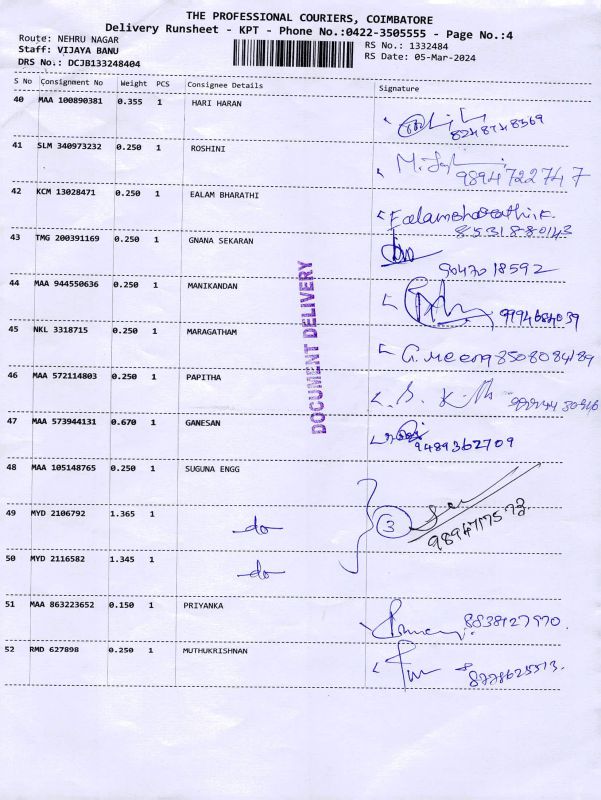 THE PROFESSIONAL COURIERS, COIMBATORE
Delivery Runsheet - KPT - Phone No.:0422-3505555 - Page No.:4
Route: NEHRU NAGAR
RS No.: 1332484
Staff: VIJAYA BANU
RS Date: 05-Mar-2024
DRS No.: DCJB133248404
S No Consignment No Weight PCS Consignee Details Signature
40 MAA 100890381 0.355 1 HARI HARAN
8248748369
41 SLM 340973232 0.250 1 ROSHINI
9894722747
42 KCM 13028471 0.250 1 EALAM BHARATHI Ealambharathi.K
8531880143
43 TMG 200391169 0.250 1 GNANA SEKARAN
9047018592
44 MAA 944550636 0.250 1 MANIKANDAN
9994684039
45 NKL 3318715 0.250 1 MARAGATHAM
G. Meena 8508084189
46 MAA 572114803 0.250 1 PAPITHA
47 MAA 573944131 0.670 1 GANESAN
9489362709
48 MAA 105148765 0.250 1 SUGUNA ENGG
49 MYD 2106792 1.365 1 -do- 3
9894717573
50 MYD 2116582 1.345 1 -do-
51 MAA 863223652 0.150 1 PRIYANKA
8838127970.
52 RMD 627898 0.250 1 MUTHUKRISHNAN
8778625513.
DOCUMENT DELIVERY